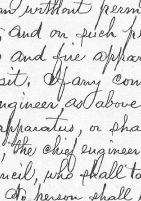 n without perm
and on such p
and fire appar
sit. If any com
ngineer, as above
apparatus, or sha
, the chief engineer
ncil, who shall to
person shall